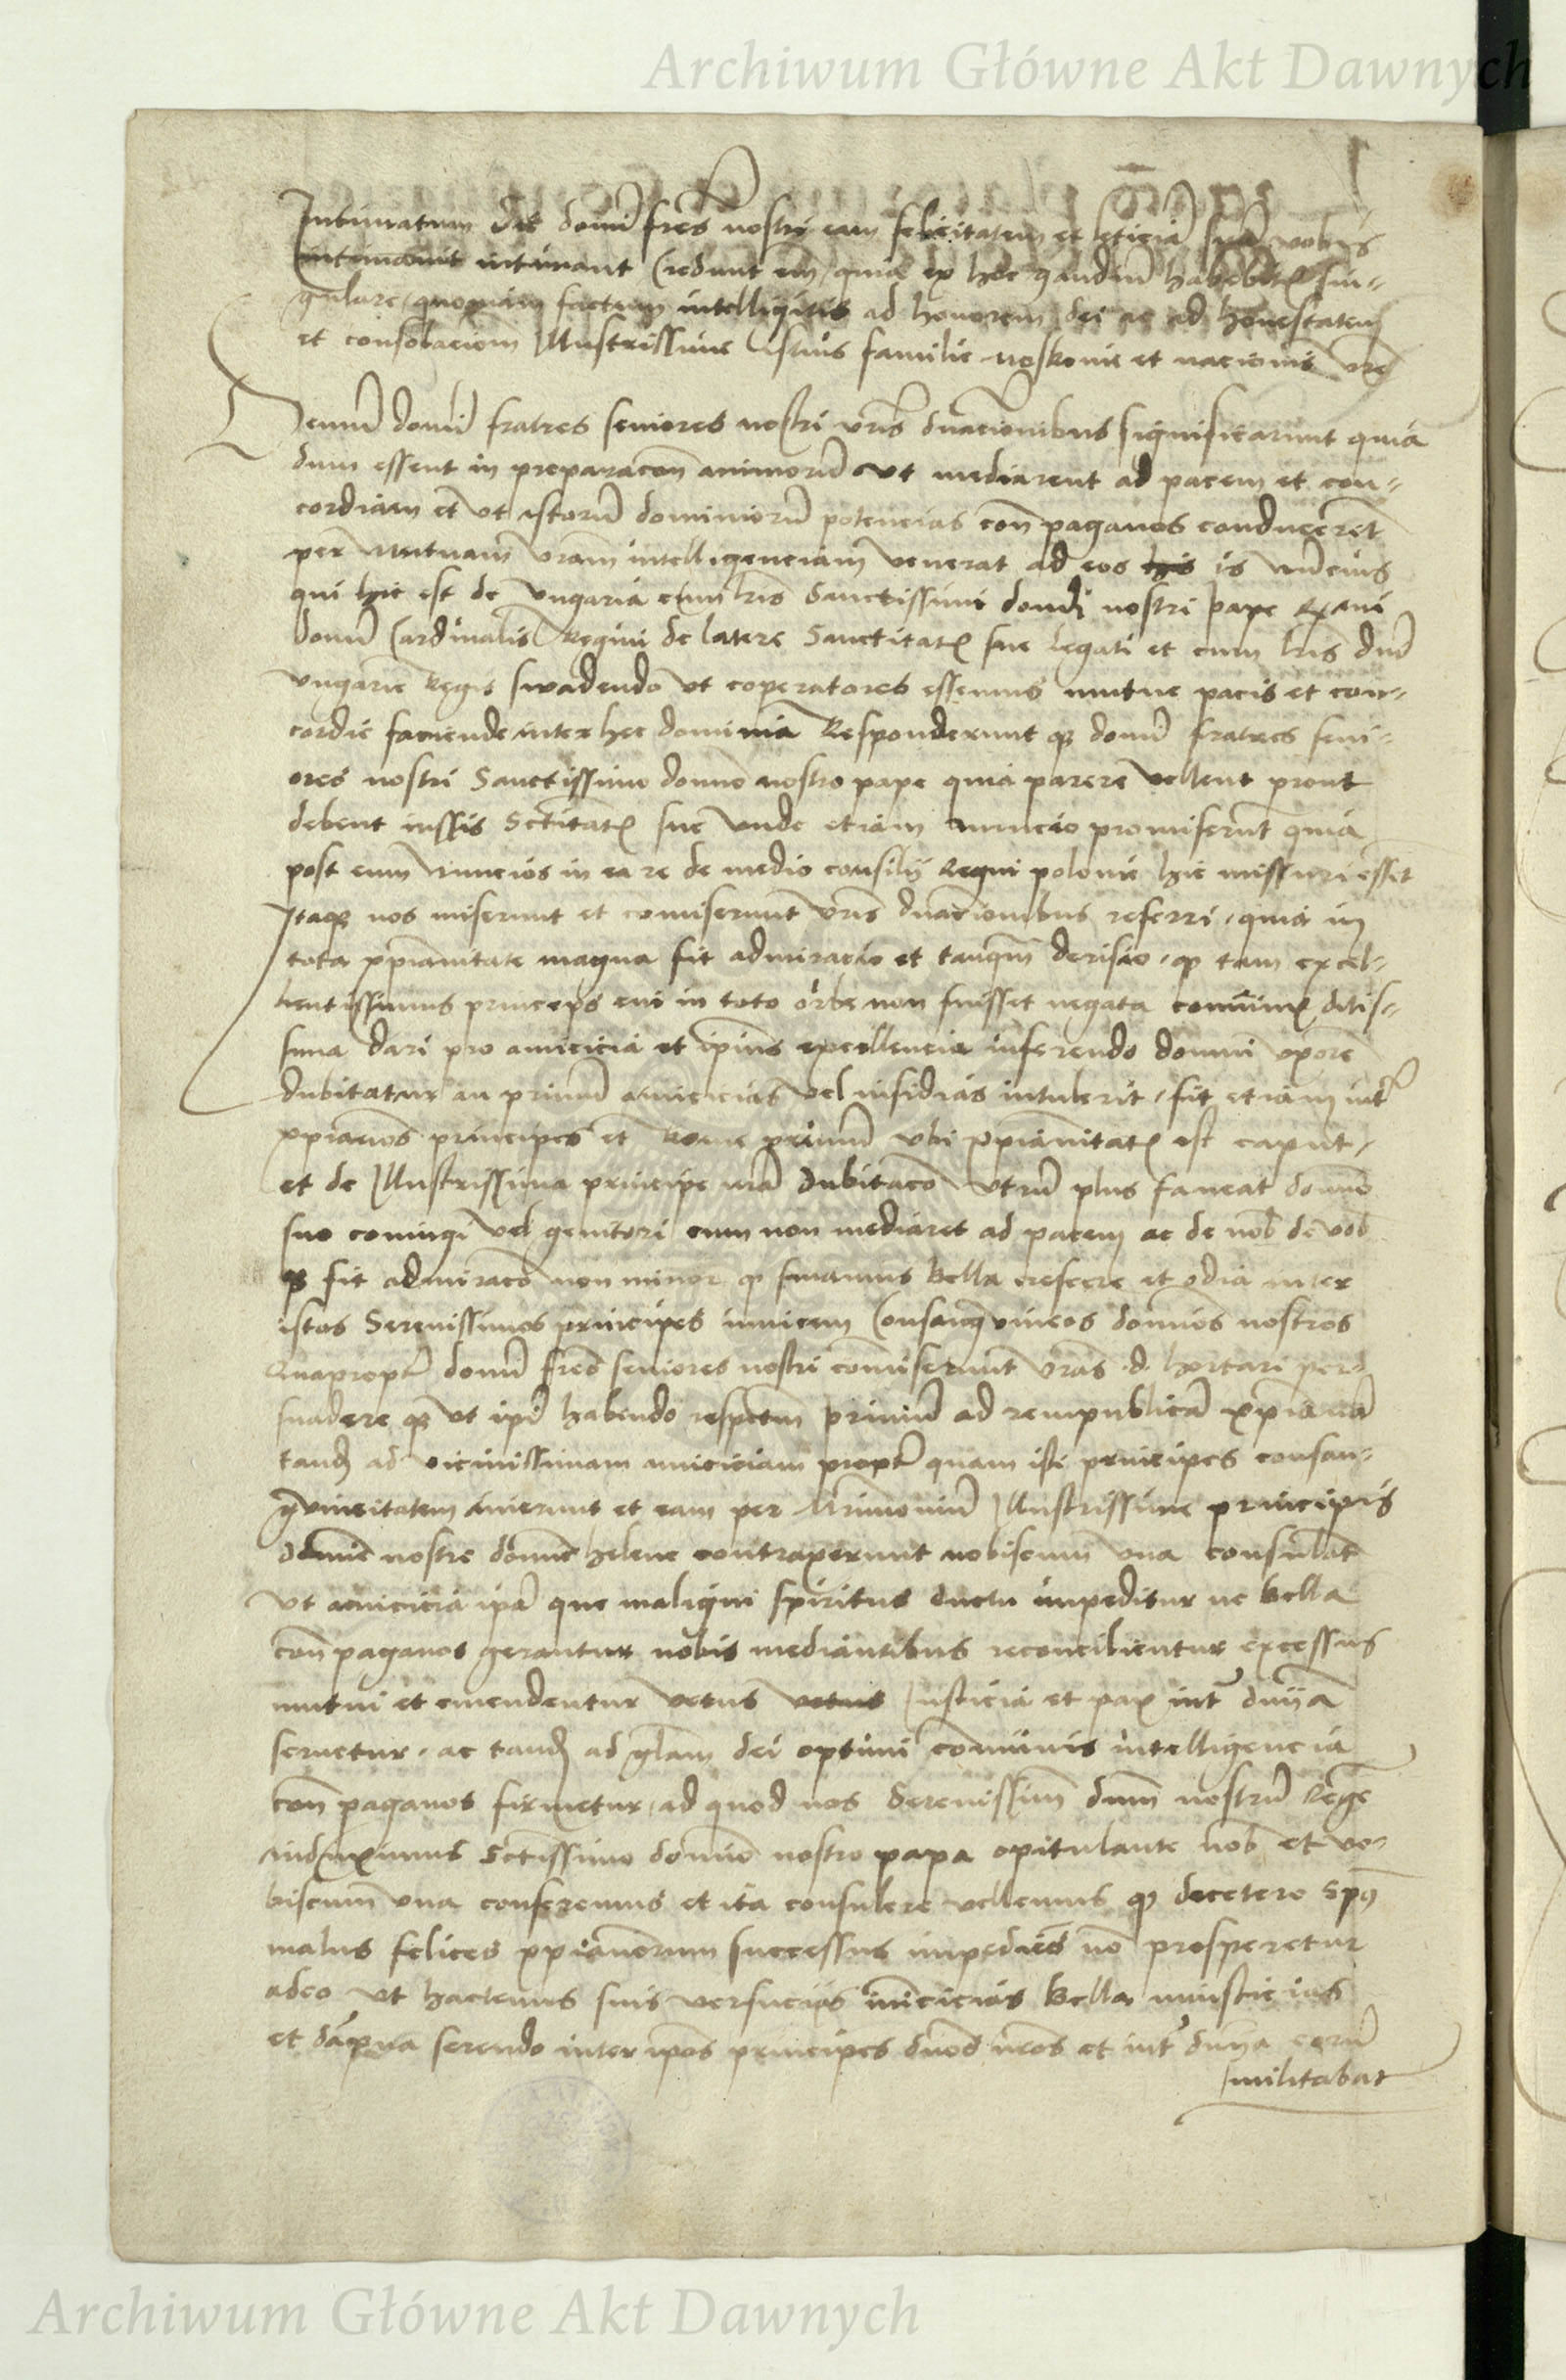 Archiwum Główne Akt Dawnych
Intimatum dnī fres nostri eam felicitatem et leticiā suā vobis
intimant Credunt em quia ex hoc gaudiū habebitis sin-
gulare quoniam factum intelligitis ad honorem dei ac ad honestatem
et consolacionem Illustrissime istius familie et nacionis vre
domī fratres seniores nostri vris dnacionibus significarunt quia
dum essent in preparacōn animorū ut mediarent ad pacem et con-
cordiam et ut istorū dominiorū potencias con paganos conduceret
per mutuam vram intelligenciam venerat ad eos is nūcius
qui hic est de Ungaria cum lris Sanctissimi domī nostri pape
domī Cardinalis Regini de latere Sanctitatis sue legati et cum lris dnī
Ungarie Regis swadendo ut coperatores essemus mutue pacis et con-
cordie faciende inter hec dominia Responderunt qz domī fratres seni-
ores nostri Sanctissimo domno nostro pape quia parere vellent prout
debent iussis Sctitatis sue unde etiam nuncio promiserunt quia
post eum nuncios in ea re de medio consilij Regni polonie hic missuri essēt
Itaqz nos miserunt et comiserunt vris dnacionibus referri, quia in
tota xpianitate magna fit admiracio et tanqm derisio, qz tam excel-
lentissimus princeps cui in toto orbe non fuisset negata ditis-
sima dari pro amicicia et ipius excellencia inferendo domui uxorē
dubitatur an primū amicicias vel insidias intulerit, fit etiam int
xpianos principes et Rome primū ubi xpianitatis est caput,
et de Illustrissima principe nra dubitacō utrū plus faveat domno
suo coniugi vel genitori cum non mediaret ad pacem ac de nob de vob
qz fit admiracō non minor qz sinamus bella crescere et odia inter
istos Serenissimos principes invicem Consangvineos domnos nostros
Quapropt domī fres seniores nostri comiserunt vras d. hortari per-
suadere qz ut ipī habendo respectum primū ad rempublicā xpianā
tandz ad vicinissimam amiciciam propt quam isti principes consan-
gvineitatem inierunt et eam per mrimoniū Illustrissime principis
domne nostre domne helene contraxerunt nobiscum una consulāt
ut amicicia ipā que maligni spiritus ductu impeditur ne bella
con paganos gerantur nobis mediantibus reconcilientur excessus
mutui et emendentur vetus Iusticia et pax int dnia
servetur, ac tandz ad glam dei optimi comunis intelligencia
con paganos firmetur, ad quod nos Serenissim dnm nostrū Regē
induximus Sctissimo domno nostro papa opitulante nob et vo-
biscum una conferemus et ita consulere vellemus qz decetero Spūs
malus felices xpianorum successus impediēs nō prosperetur
adeo ut hactenus suis versucijs inīcicias bella iniusticias
et dāpna serendo inter ipos principes dnos nros et int dnia eorū
militabat
Archiwum Główne Akt Dawnych